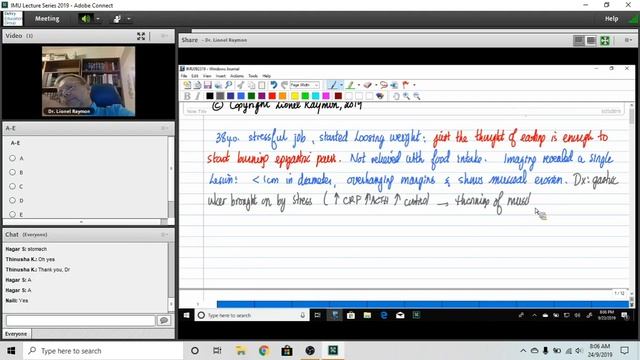 IMU Lecture Series 2019 - Adobe Connect
DeVry
Education
Group
Meeting
Help
Video (1)
Share - Dr. Lionel Raymon
Dr. Lionel Raymon
IMU092319 - Windows Journal
File Edit View Insert Actions Tools Help
Page Width
Note Title
© Copyright Lionel Raymon, 2019
38 yo. stressful job, started loosing weight: just the thought of eating is enough to
start burning epigastric pain. Not relieved with food intake. Imaging revealed a single
Lesion: < 1cm in diameter, overhanging margins & shows mucosal erosion. Dx: gastric
ulcer brought on by stress (↑ CRF ↑ ACTH ↑ cortisol → thinning of mucos
1 / 12
A-E
A-E
A
B
C
D
E
Chat (Everyone)
Hagar S: stomech
Thinusha K.: Oh yes
Thinusha K.: Thank you, Dr
Hagar S: A
Hagar S: A
Naili: Yes
Everyone
Type here to search
8:06 PM
9/23/2019
Type here to search
8:06 AM
24/9/2019